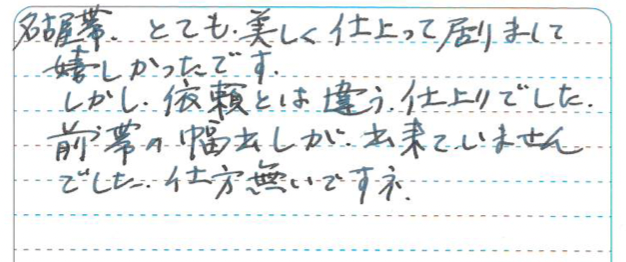 名古屋帯、とても、美しく仕上って居りまして
嬉しかったです。
しかし、依頼とは違う、仕上りでした。
前帯の幅出しが、出来ていません
でした。仕方無いですネ、